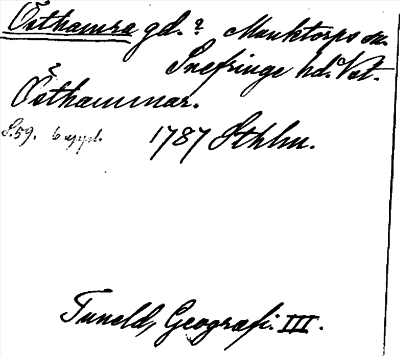 Östhamra gd.? Munktorps sn.
Snefringe hd. Vst.
Östhammar.
S.59. 6 uppl. 1787 Sthlm.
Tuneld, Geografi. III.